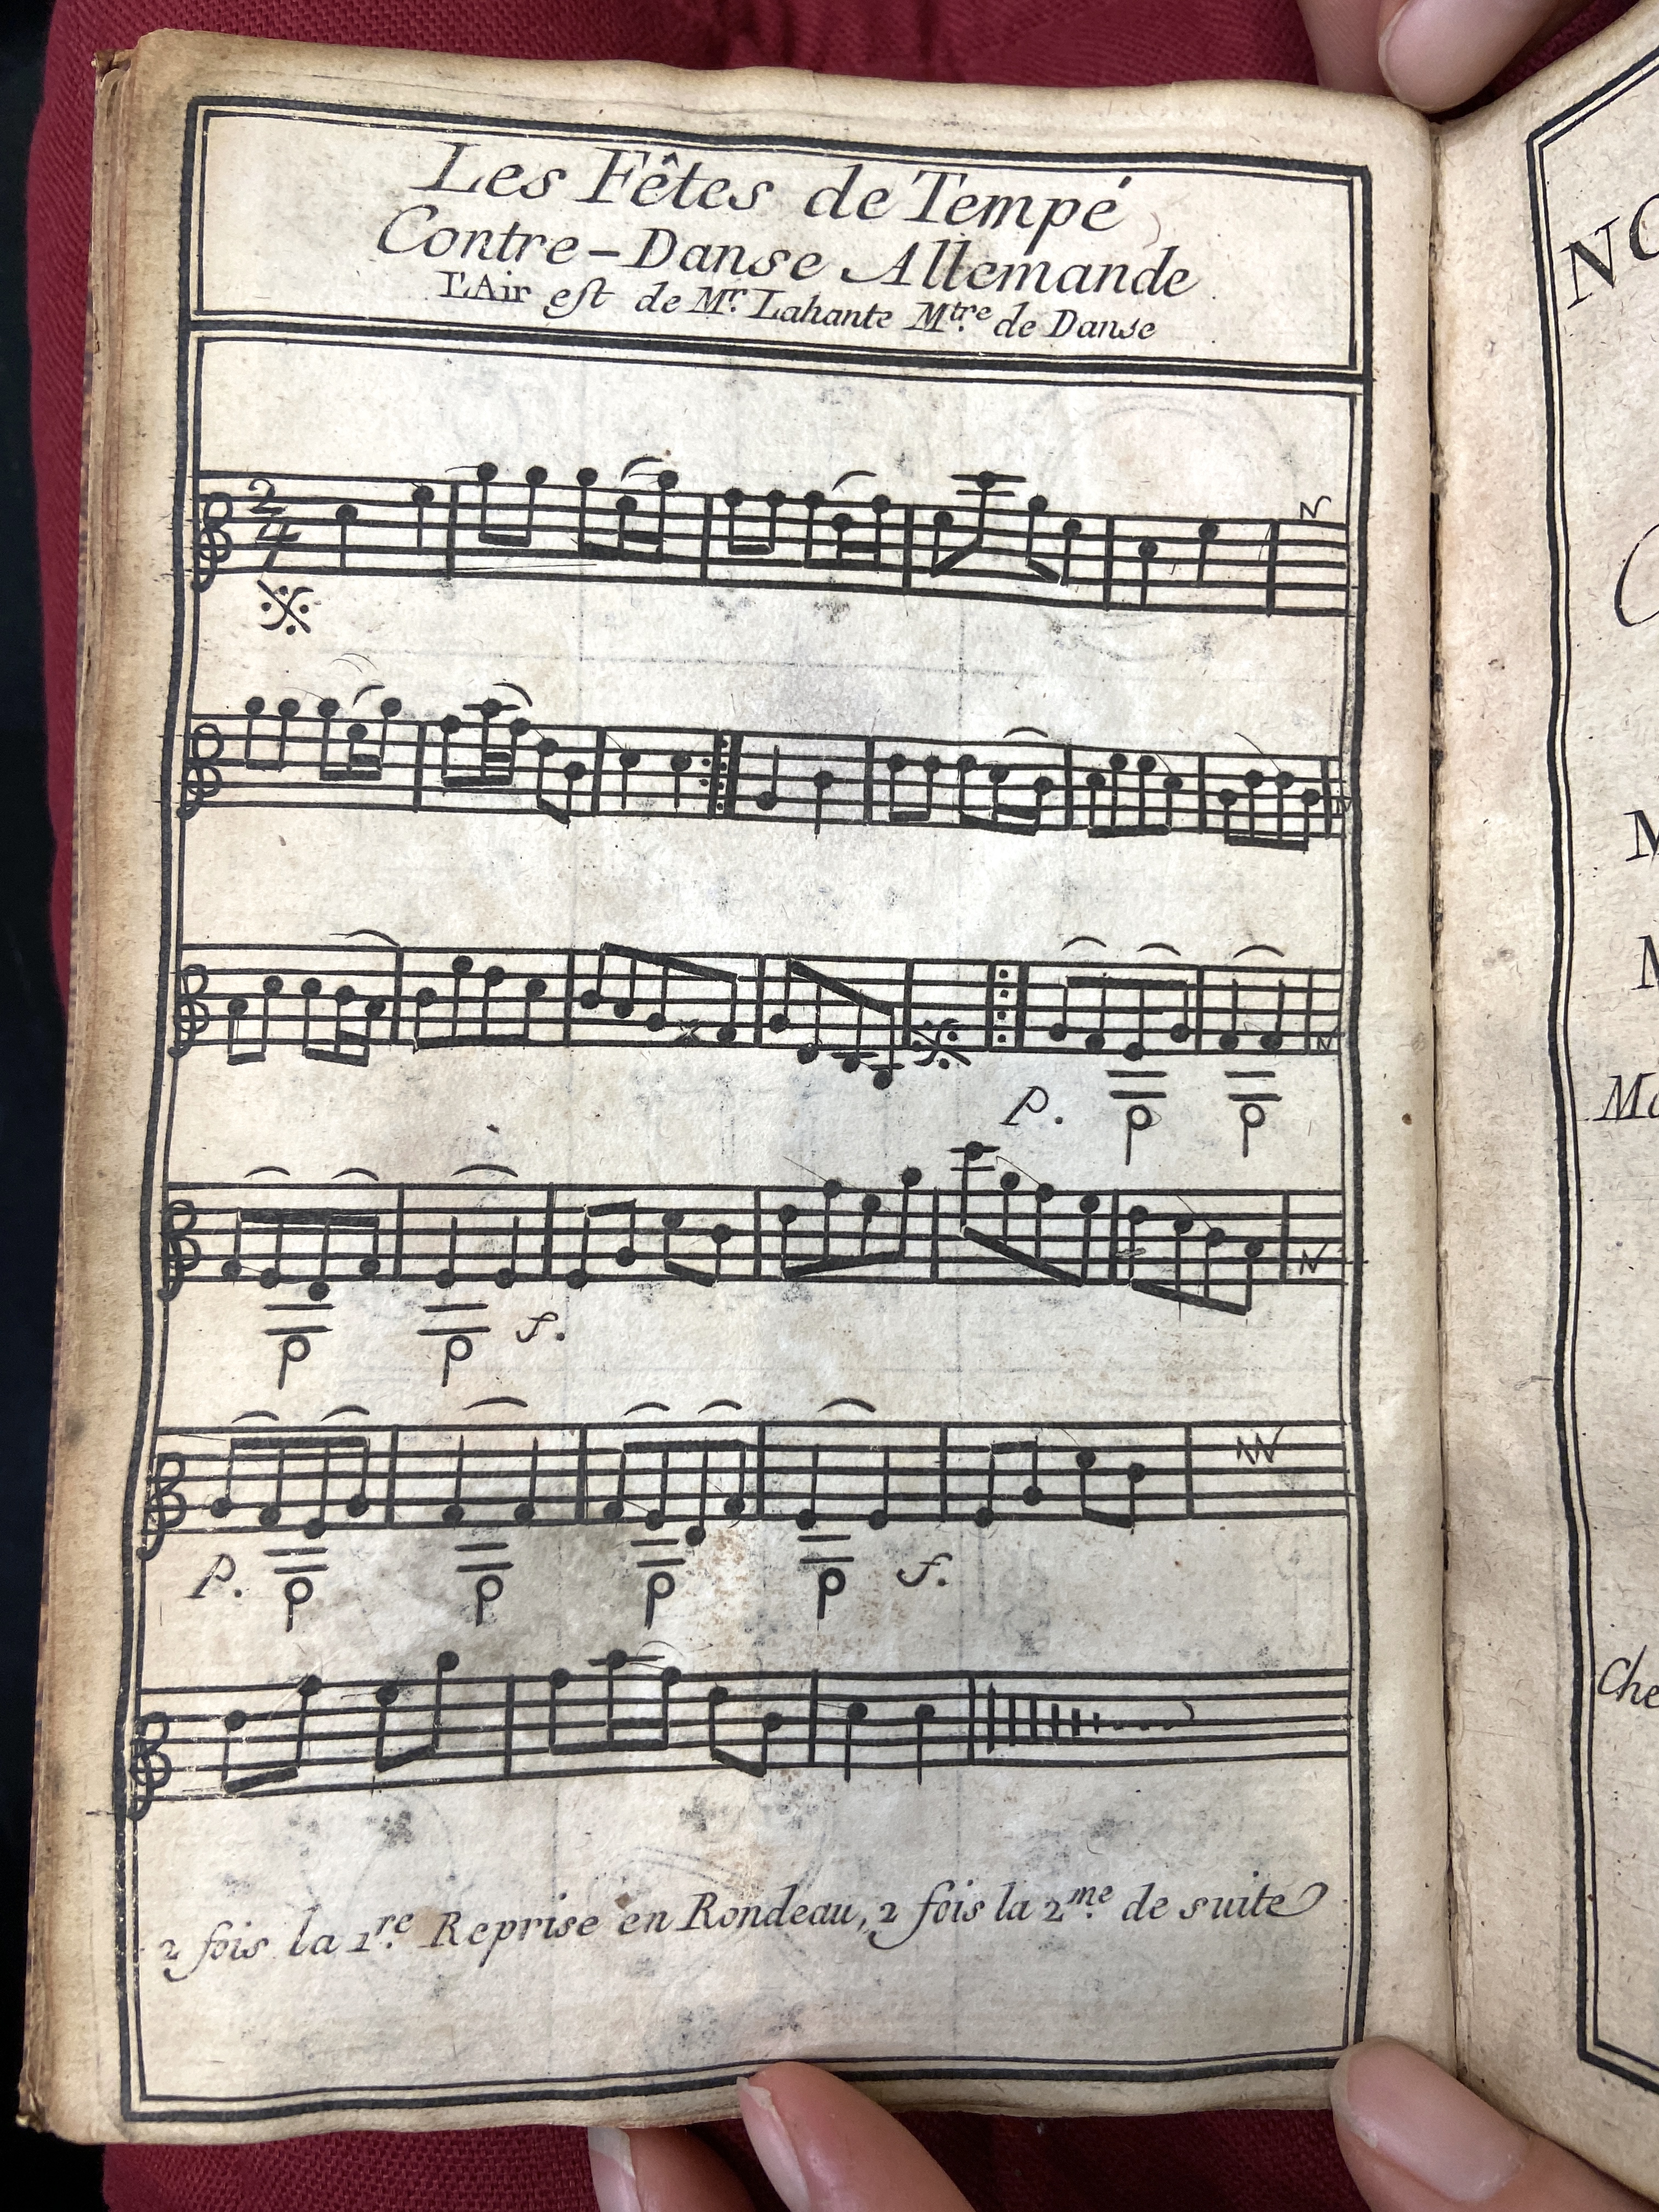 Les Fêtes de Tempé
Contre-Danse Allemande
L'Air est de Mr. Lahante Mtre. de Danse
2
4
P.
f.
P.
f.
2 fois la 1re. Reprise en Rondeau, 2 fois la 2me. de suite